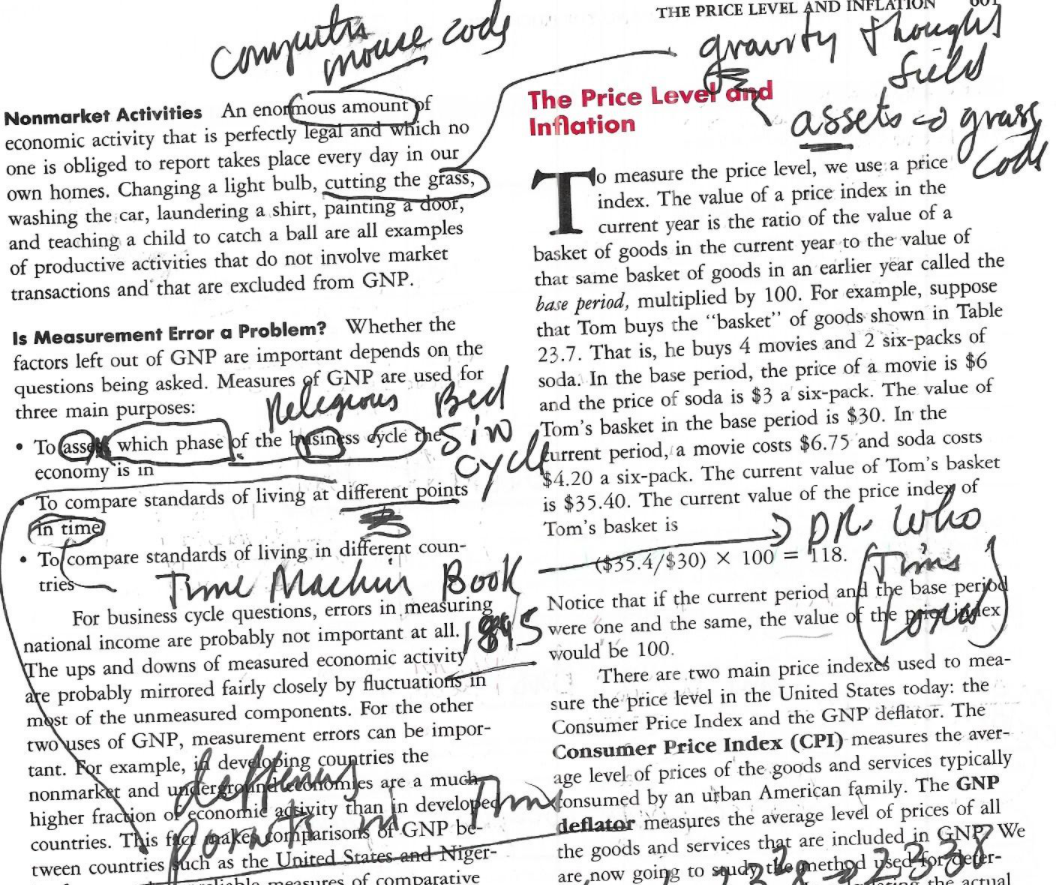 THE PRICE LEVEL AND INFLATION 601
mouse code
gravity thought
field
assets → grass
code
Nonmarket Activities An enormous amount of
economic activity that is perfectly legal and which no
one is obliged to report takes place every day in our
own homes. Changing a light bulb, cutting the grass,
washing the car, laundering a shirt, painting a door,
and teaching a child to catch a ball are all examples
of productive activities that do not involve market
transactions and that are excluded from GNP.
Is Measurement Error a Problem? Whether the
factors left out of GNP are important depends on the
questions being asked. Measures of GNP are used for
three main purposes:
Religious Bed
Sin
Cycle
• To assess which phase of the business cycle the
economy is in
• To compare standards of living at different points
in time
• To compare standards of living in different coun-
tries
Time Machin Book
1895
For business cycle questions, errors in measuring
national income are probably not important at all.
The ups and downs of measured economic activity
are probably mirrored fairly closely by fluctuations in
most of the unmeasured components. For the other
two uses of GNP, measurement errors can be impor-
tant. For example, in developing countries the
nonmarket and underground economies are a much
higher fraction of economic activity than in developed
countries. This fact makes comparisons of GNP be-
tween countries such as the United States and Niger-
measures of comparative
The Price Level and
Inflation
To measure the price level, we use a price
index. The value of a price index in the
current year is the ratio of the value of a
basket of goods in the current year to the value of
that same basket of goods in an earlier year called the
base period, multiplied by 100. For example, suppose
that Tom buys the "basket" of goods shown in Table
23.7. That is, he buys 4 movies and 2 six-packs of
soda. In the base period, the price of a movie is $6
and the price of soda is $3 a six-pack. The value of
Tom's basket in the base period is $30. In the
current period, a movie costs $6.75 and soda costs
$4.20 a six-pack. The current value of Tom's basket
is $35.40. The current value of the price index of
Tom's basket is
DR. Who
($35.4/$30) × 100 = 118.
(Time
Lord)
Notice that if the current period and the base period
were one and the same, the value of the price index
would be 100.
There are two main price indexes used to mea-
sure the price level in the United States today: the
Consumer Price Index and the GNP deflator. The
Consumer Price Index (CPI) measures the aver-
age level of prices of the goods and services typically
consumed by an urban American family. The GNP
deflator measures the average level of prices of all
the goods and services that are included in GNP. We
are now going to study the method used for deter-
the actual
2338